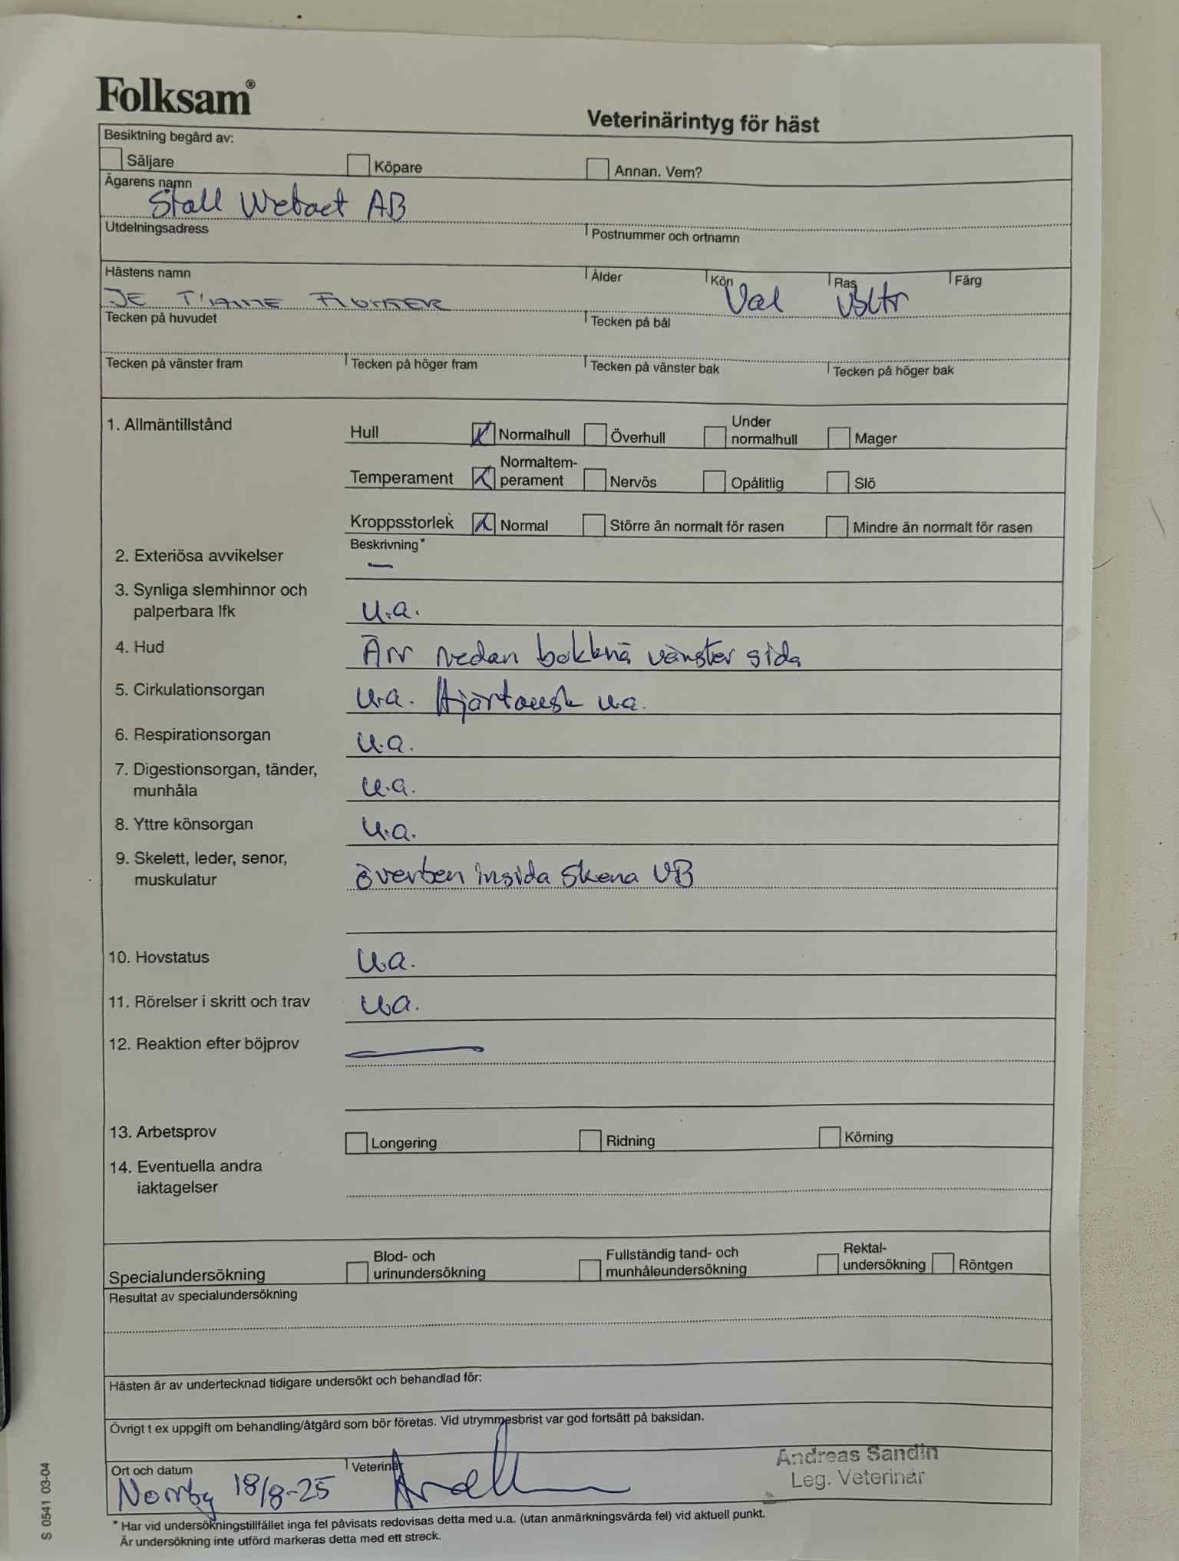 Folksam®
Veterinärintyg för häst
Besiktning begärd av:
Säljare Köpare Annan. Vem?
Ägarens namn
Stall Webact AB
Utdelningsadress Postnummer och ortnamn
Hästens namn Ålder Kön Ras Färg
JE T'AIME Val vbltr
Tecken på huvudet Tecken på bål
Tecken på vänster fram Tecken på höger fram Tecken på vänster bak Tecken på höger bak
1. Allmäntillstånd
Hull Normalhull Överhull Under normalhull Mager
Temperament Normaltem-perament Nervös Opålitlig Slö
Kroppsstorlek Normal Större än normalt för rasen Mindre än normalt för rasen
Beskrivning*
2. Exteriösa avvikelser —
3. Synliga slemhinnor och
palperbara lfk u.a.
4. Hud Ärr nedan bakknä vänster sida
5. Cirkulationsorgan u.a. Hjärtausk u.a.
6. Respirationsorgan u.a.
7. Digestionsorgan, tänder,
munhåla u.a.
8. Yttre könsorgan u.a.
9. Skelett, leder, senor,
muskulatur överben insida skena VB
10. Hovstatus u.a.
11. Rörelser i skritt och trav u.a.
12. Reaktion efter böjprov —
13. Arbetsprov Longering Ridning Körning
14. Eventuella andra
iaktagelser
Specialundersökning Blod- och urinundersökning Fullständig tand- och munhåleundersökning Rektal-undersökning Röntgen
Resultat av specialundersökning
Hästen är av undertecknad tidigare undersökt och behandlad för:
Övrigt t ex uppgift om behandling/åtgärd som bör företas. Vid utrymmesbrist var god fortsätt på baksidan.
Ort och datum Veterinär
Norrby 18/8-25
Andreas Sandin
Leg. Veterinär
* Har vid undersökningstillfället inga fel påvisats redovisas detta med u.a. (utan anmärkningsvärda fel) vid aktuell punkt.
Är undersökning inte utförd markeras detta med ett streck.
S 0541 03-04